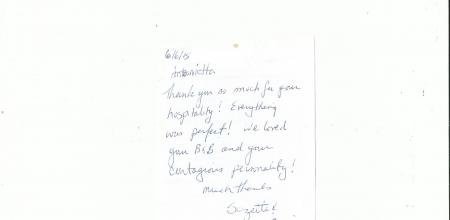 6/6/15
Antonietta
Thank you so much for your
hospitality! Everything
was perfect! We loved
your B&B and your
contagious personality!
much thanks
Suzette &